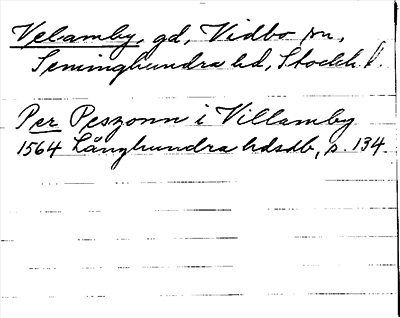 Velamby, gd, Vidbo sn,
Seminghundra hd, Stockh. l.
Per Peszonn i Villamby
1564 Långhundra hdsdb, p. 134.